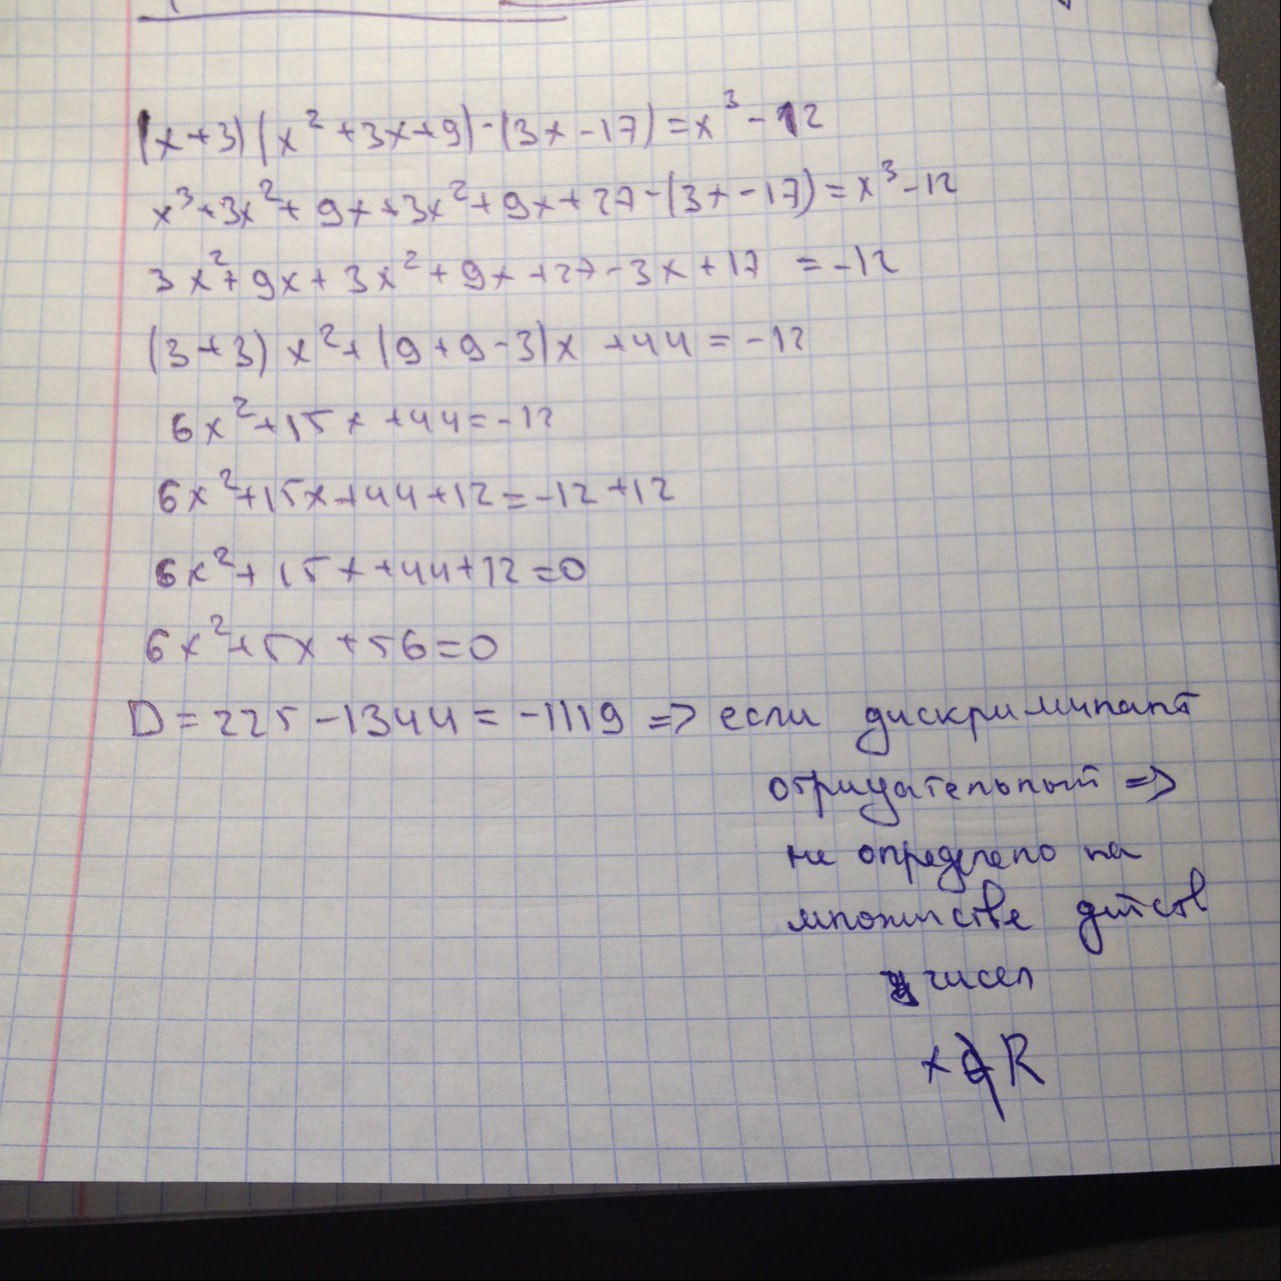 (x+3)(x²+3x+9)-(3x-17)=x³-12
x³+3x²+9x+3x²+9x+27-(3x-17)=x³-12
3x²+9x+3x²+9x+27-3x+17 = -12
(3+3)x²+(9+9-3)x +44 = -12
6x²+15x+44=-12
6x²+15x+44+12=-12+12
6x²+15x+44+12=0
6x²+5x+56=0
D=225-1344=-1119 => если дискриминант
отрицательный =>
не определено на
множистве дйств
чисел
x∉R